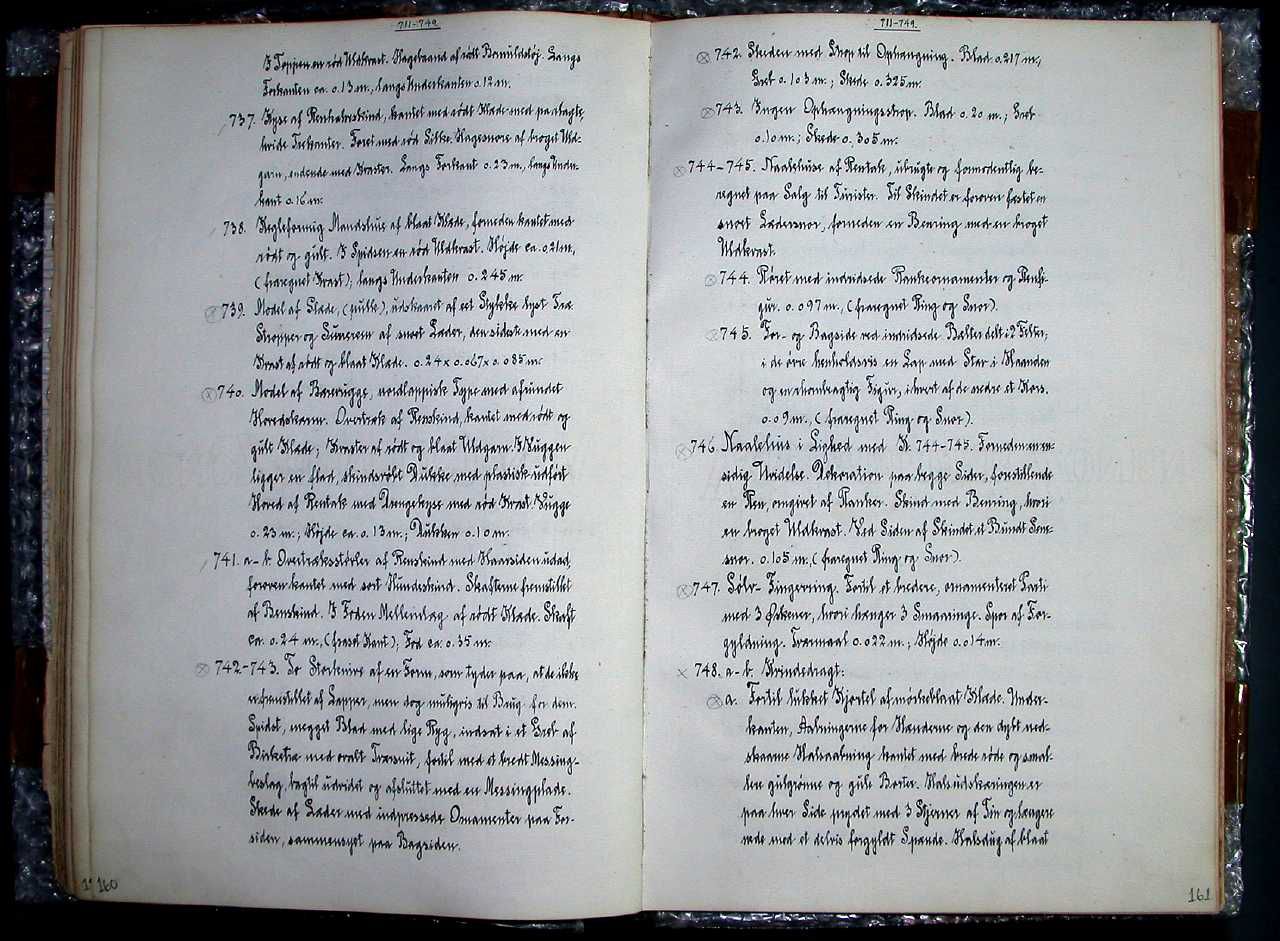 711-749.
I Toppen en rød Uldkvast. Hagebaand af rødt Bomuldstøj. Langs
Forkanten ca. 0.13 m., langs Underkanten 0.12 m.
737. Kyse af Renkalveskind, kantet med rødt Klæde med paalagte,
hvide Trekanter. Foret med rød Silke. Hagesnore af broget Uld-
garn, endende med Kvaster. Langs Forkant 0.23 m., langs Under-
kant 0.16 m.
738. Kegleformig Mandshue af blaat Klæde, forneden kantet med
rødt og gult. I Spidsen en rød Uldkvast. Højde ca. 0.21 m,
(fraregnet Kvast); langs Underkanten 0.245 m.
739. Model af Slæde, (pulka), udskaaret af eet Stykke lyst Træ.
Stropper og Surreren af snoet Læder, den sidste med en
Kvast af rødt og blaat Klæde. 0.24 x 0.067 x 0.085 m.
740. Model af Barevugge, nordlappisk Type med afrundet
Hovedskærm. Overtræk af Renskind, kantet med rødt og
gult Klæde; Kvaster af rødt og blaat Uldgarn. I Vuggen
ligger en flad, skindsvøbt Dukke med plastisk udført
Hoved af Rentak med Drengekyse med rød Kvast. Vugge
0.23 m.; Højde ca. 0.13 m.; Dukken 0.10 m.
741. a-b. Overtræksstøvler af Renskind med Haarsiden udad,
foroven kantet med sort Hundeskind. Skafterne fremstillet
af Benskind. I Foden Mellemlæg af rødt Klæde. Skaft
ca. 0.24 m., (fraset Kant); Fod ca. 0.35 m.
742-743. To Storknive af en Form, som tyder paa, at de ikke
er fremstillet af Lapper, men dog muligvis til Brug for dem.
Spidst, ægget Blad med lige Ryg, indsat i et Greb af
Birketræ med ovalt Tværsnit, fortil med et bredt Messing-
beslag, bagtil udvidet og afsluttet med en Messingplade.
Skede af Læder med indpressede Ornamenter paa For-
siden, sammensyet paa Bagsiden.
160
711-749.
742. Skeden med Strop til Ophængning. Blad 0.217 m.,
Greb 0.103 m.; Skede 0.325 m.
743. Ingen Ophængningsstrop. Blad 0.20 m.; Greb
0.10 m.; Skede 0.305 m.
744-745. Naalehuse af Rentak, ubrugte og formodentlig be-
regnet paa Salg til Turister. Til Skindet er foroven fæstet en
snoet Lædersnor, forneden en Benring med en broget
Uldkvast.
744. Røret med indridsede Rankeornamenter og Renfi-
gur. 0.097 m., (fraregnet Ring og Snor).
745. For- og Bagside ved indridsede Bælter delt i 2 Felter;
i de øvre henholdsvis en Lap med Stav i Haanden
og en skomagtig Figur, i hvert af de nedre et Kors.
0.09 m., (fraregnet Ring og Snor).
746. Naalehus i Lighed med N. 744-745. Forneden en en-
sidig Udvidelse. Dekoration paa begge Sider, forestillende
en Ren, omgivet af Ranker. Skind med Benring, hvori
en broget Uldkvast. Ved Siden af Skindet et Bundt Sene-
snor. 0.105 m., (fraregnet Ring og Snor).
747. Sølv-Fingerring. Fortil et bredere, ornamenteret Parti
med 3 Øskener, hvori hænger 3 Smaaringe. Spor af For-
gyldning. Tværmaal 0.022 m.; Højde 0.014 m.
748. a-b. Kvindedragt:
a. Fortil lukket Kjortel af mørkeblaat Klæde. Under-
kanten, Aabningerne for Hænderne og den dybt ned-
skaarne Halsaabning kantet med brede røde og smal-
lere gulgrønne og gule Borter. Halsudskæringen er
paa hver Side prydet med 3 Stjerner af Tin og længere
nede med et delvis forgyldt Spænde. Halsdug af blaat
161